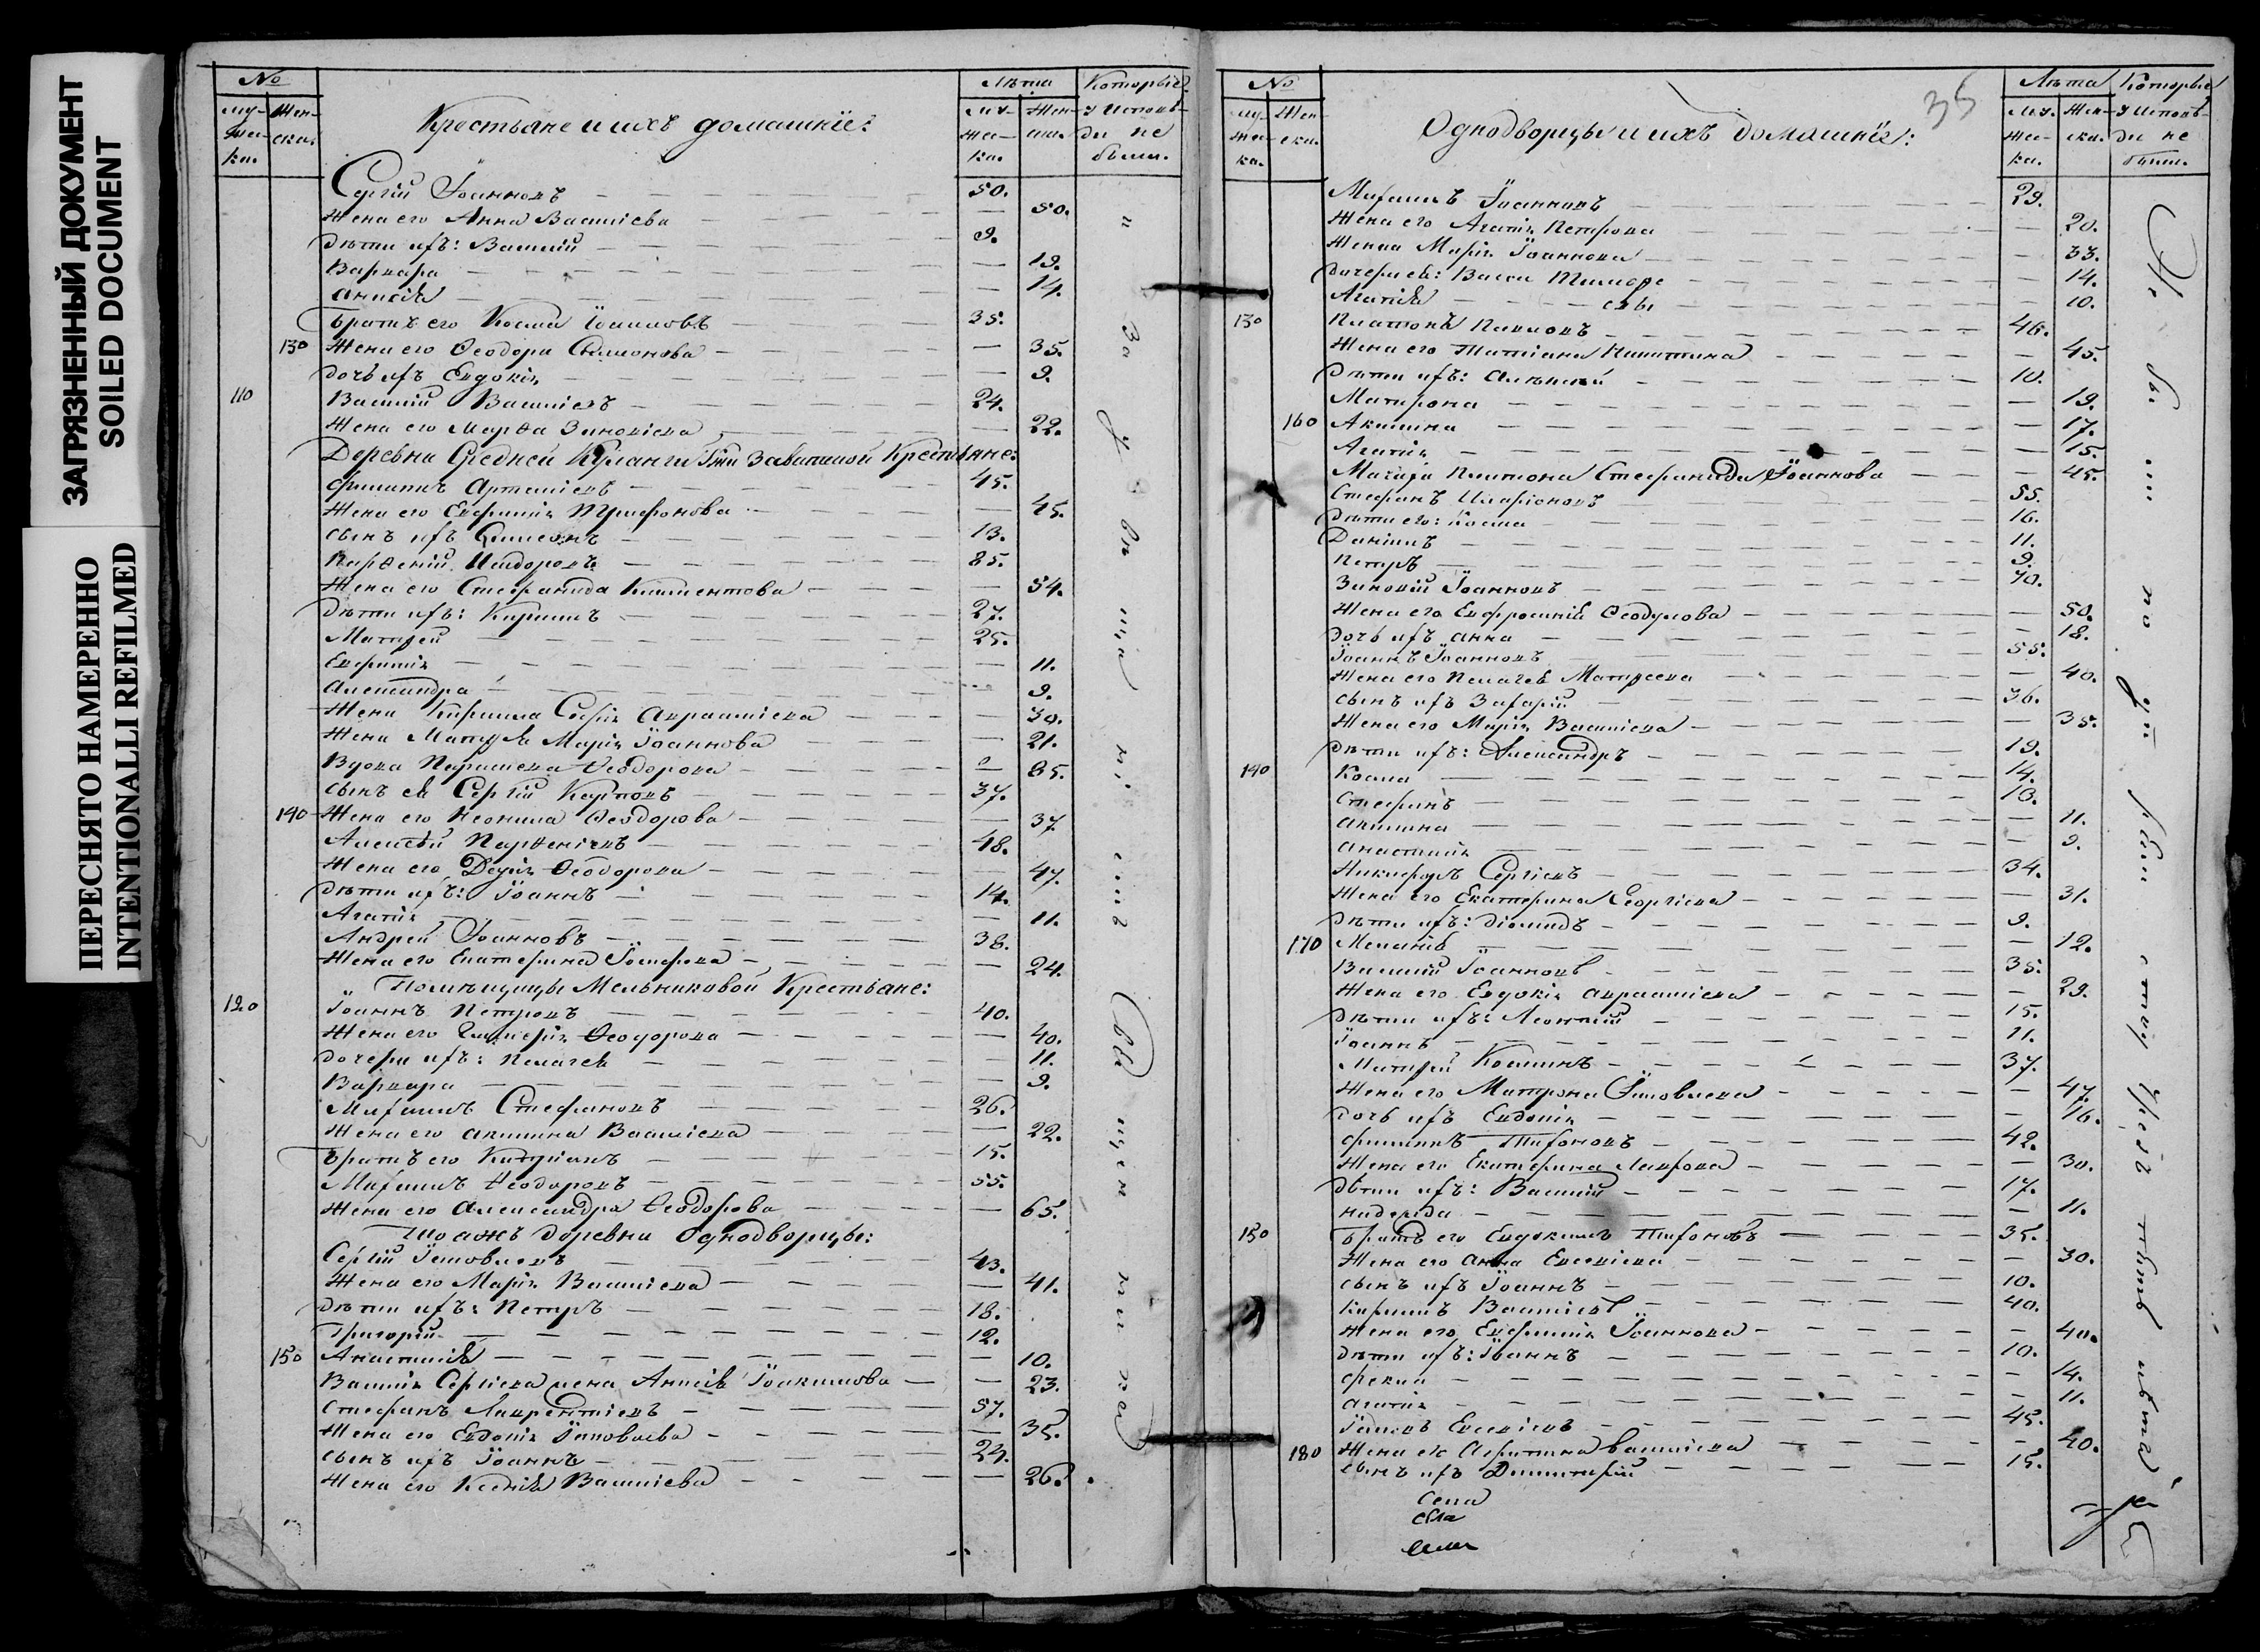 ЗАГРЯЗНЕННЫЙ ДОКУМЕНТ
SOILED DOCUMENT
ПЕРЕСНЯТО НАМЕРЕННО
INTENTIONALLI REFILMED
№ Лѣта Которые
му- Жен- Крестьяне и ихъ домашніе: му- Жен- у исповѣ-
жес- ска. жес- ска. ди не
ка. ка. были.
Сергій Іоанновъ 50.
Жена его Анна Василіева 50.
Дѣти ихъ: Василій 9.
Варвара 19.
Анисія 14.
Братъ его Косма Іоанновъ 35.
130 Жена его Ѳеодора Симонова 35.
Дочь ихъ Евдокія 9.
110 Василій Василіевъ 24.
Жена его Марѳа Зиновіева 22.
Деревни Средней Крестьяне:
Филиппъ Артеміевъ 45.
Жена его Евфимія Трифонова 45.
Сынъ ихъ Симеонъ 13.
Парѳеній Исидоровъ 85.
Жена его Стефанида Климентова 54.
Дѣти ихъ: Кириллъ 27.
Матѳей 25.
Евфимія 11.
Александра 9.
Жена Кирилла Софія Аврааміева 30.
Жена Матѳея Марія Іоаннова 21.
Вдова Параскева Ѳеодорова 65.
Сынъ ея Сергій Карповъ 37.
140 Жена его Неонила Ѳеодорова 37
Алексѣй Парѳеніевъ 48.
Жена его Дарія Ѳеодорова 47.
Дѣти ихъ: Іоаннъ 14.
Агапія 11.
Андрей Іоанновъ 38.
Жена его Екатерина Іосифова 24.
Помѣщицы Мельниковой Крестьяне:
120 Іоаннъ Петровъ 40.
Жена его Гликерія Ѳеодорова 40.
Дочери ихъ: Пелагея 11.
Варвара 9.
Михаилъ Стефановъ 26.
Жена его Акилина Василіева 22.
Братъ его Кипріанъ 15.
Михаилъ Ѳеодоровъ 55.
Жена его Александра Ѳеодорова 65.
Той жъ деревни Однодворцы:
Сергій Іаковлевъ 43.
Жена его Марія Василіева 41.
Дѣти ихъ: Петръ 18.
Григорій 12.
150 Анастасія 10.
Василія Сергіева жена Анисія Іоакимова 23.
Стефанъ Лаврентіевъ 57.
Жена его Евдокія Іаковлева 35.
Сынъ ихъ Іоаннъ 23.
Жена его Ксенія Василіева 26.
35
№ Лѣта Которые
му- Жен- Однодворцы и ихъ домашніе: му- Жен- у исповѣ-
жес- ска. жес- ска. ди не
ка. ка. были.
Михаилъ Іоанновъ 29.
Жена его Агапія Петрова 20.
Женка Марія Іоаннова 33.
Дочери ея: Васса 14.
Агапія 10.
130 Платонъ Павловъ 46.
Жена его Татіана Никитина 45.
Дѣти ихъ: Алексѣй 10.
Матрона 19.
160 Акилина 17.
Агапія 15.
Мачиха Платона Стефанида Іоаннова 45.
Стефанъ Иларіоновъ 55.
Дѣти его: Косма 16.
Даніилъ 11.
Петръ 9.
Зиновій Іоанновъ 70.
Жена его Евфросинія Ѳеодулова 50.
Дочь ихъ Анна 18.
Іоаннъ Іоанновъ 55.
Жена его Пелагея Матѳеева 40.
Сынъ ихъ Захарій 36.
Жена его Марія Василіева 35.
Дѣти ихъ: Александръ 19.
140 Косма 14.
Стефанъ 10.
Акилина 11.
Анастасія 9.
Никифоръ Сергіевъ 34.
Жена его Екатерина Георгіева 31.
Дѣти ихъ: Діомидъ 9.
170 Меланія 12.
Василій Іоанновъ 35.
Жена его Евдокія Аврааміева 29.
Дѣти ихъ: Леонтій 15.
Іоаннъ 11.
Матѳей Косминъ 37.
Жена его Матрона Іаковлева 47.
Дочь ихъ Евдокія 16.
Филиппъ Тихоновъ 42.
Жена его Екатерина Лаврова 30.
Дѣти ихъ: Василій 17.
Надежда 11.
150 Братъ его Евдокимъ Тихоновъ 35.
Жена его Анна Евсевіева 30.
Сынъ ихъ Іоаннъ 10.
Кириллъ Василіевъ 40.
Жена его Евфимія Іоаннова 40.
Дѣти ихъ: Іоаннъ 10.
Фекла 14.
Агапія 11.
Іаковъ Евсевіевъ 45.
180 Жена его Агрипина Василіева 40.
Сынъ ихъ Димитрій 15.
Села